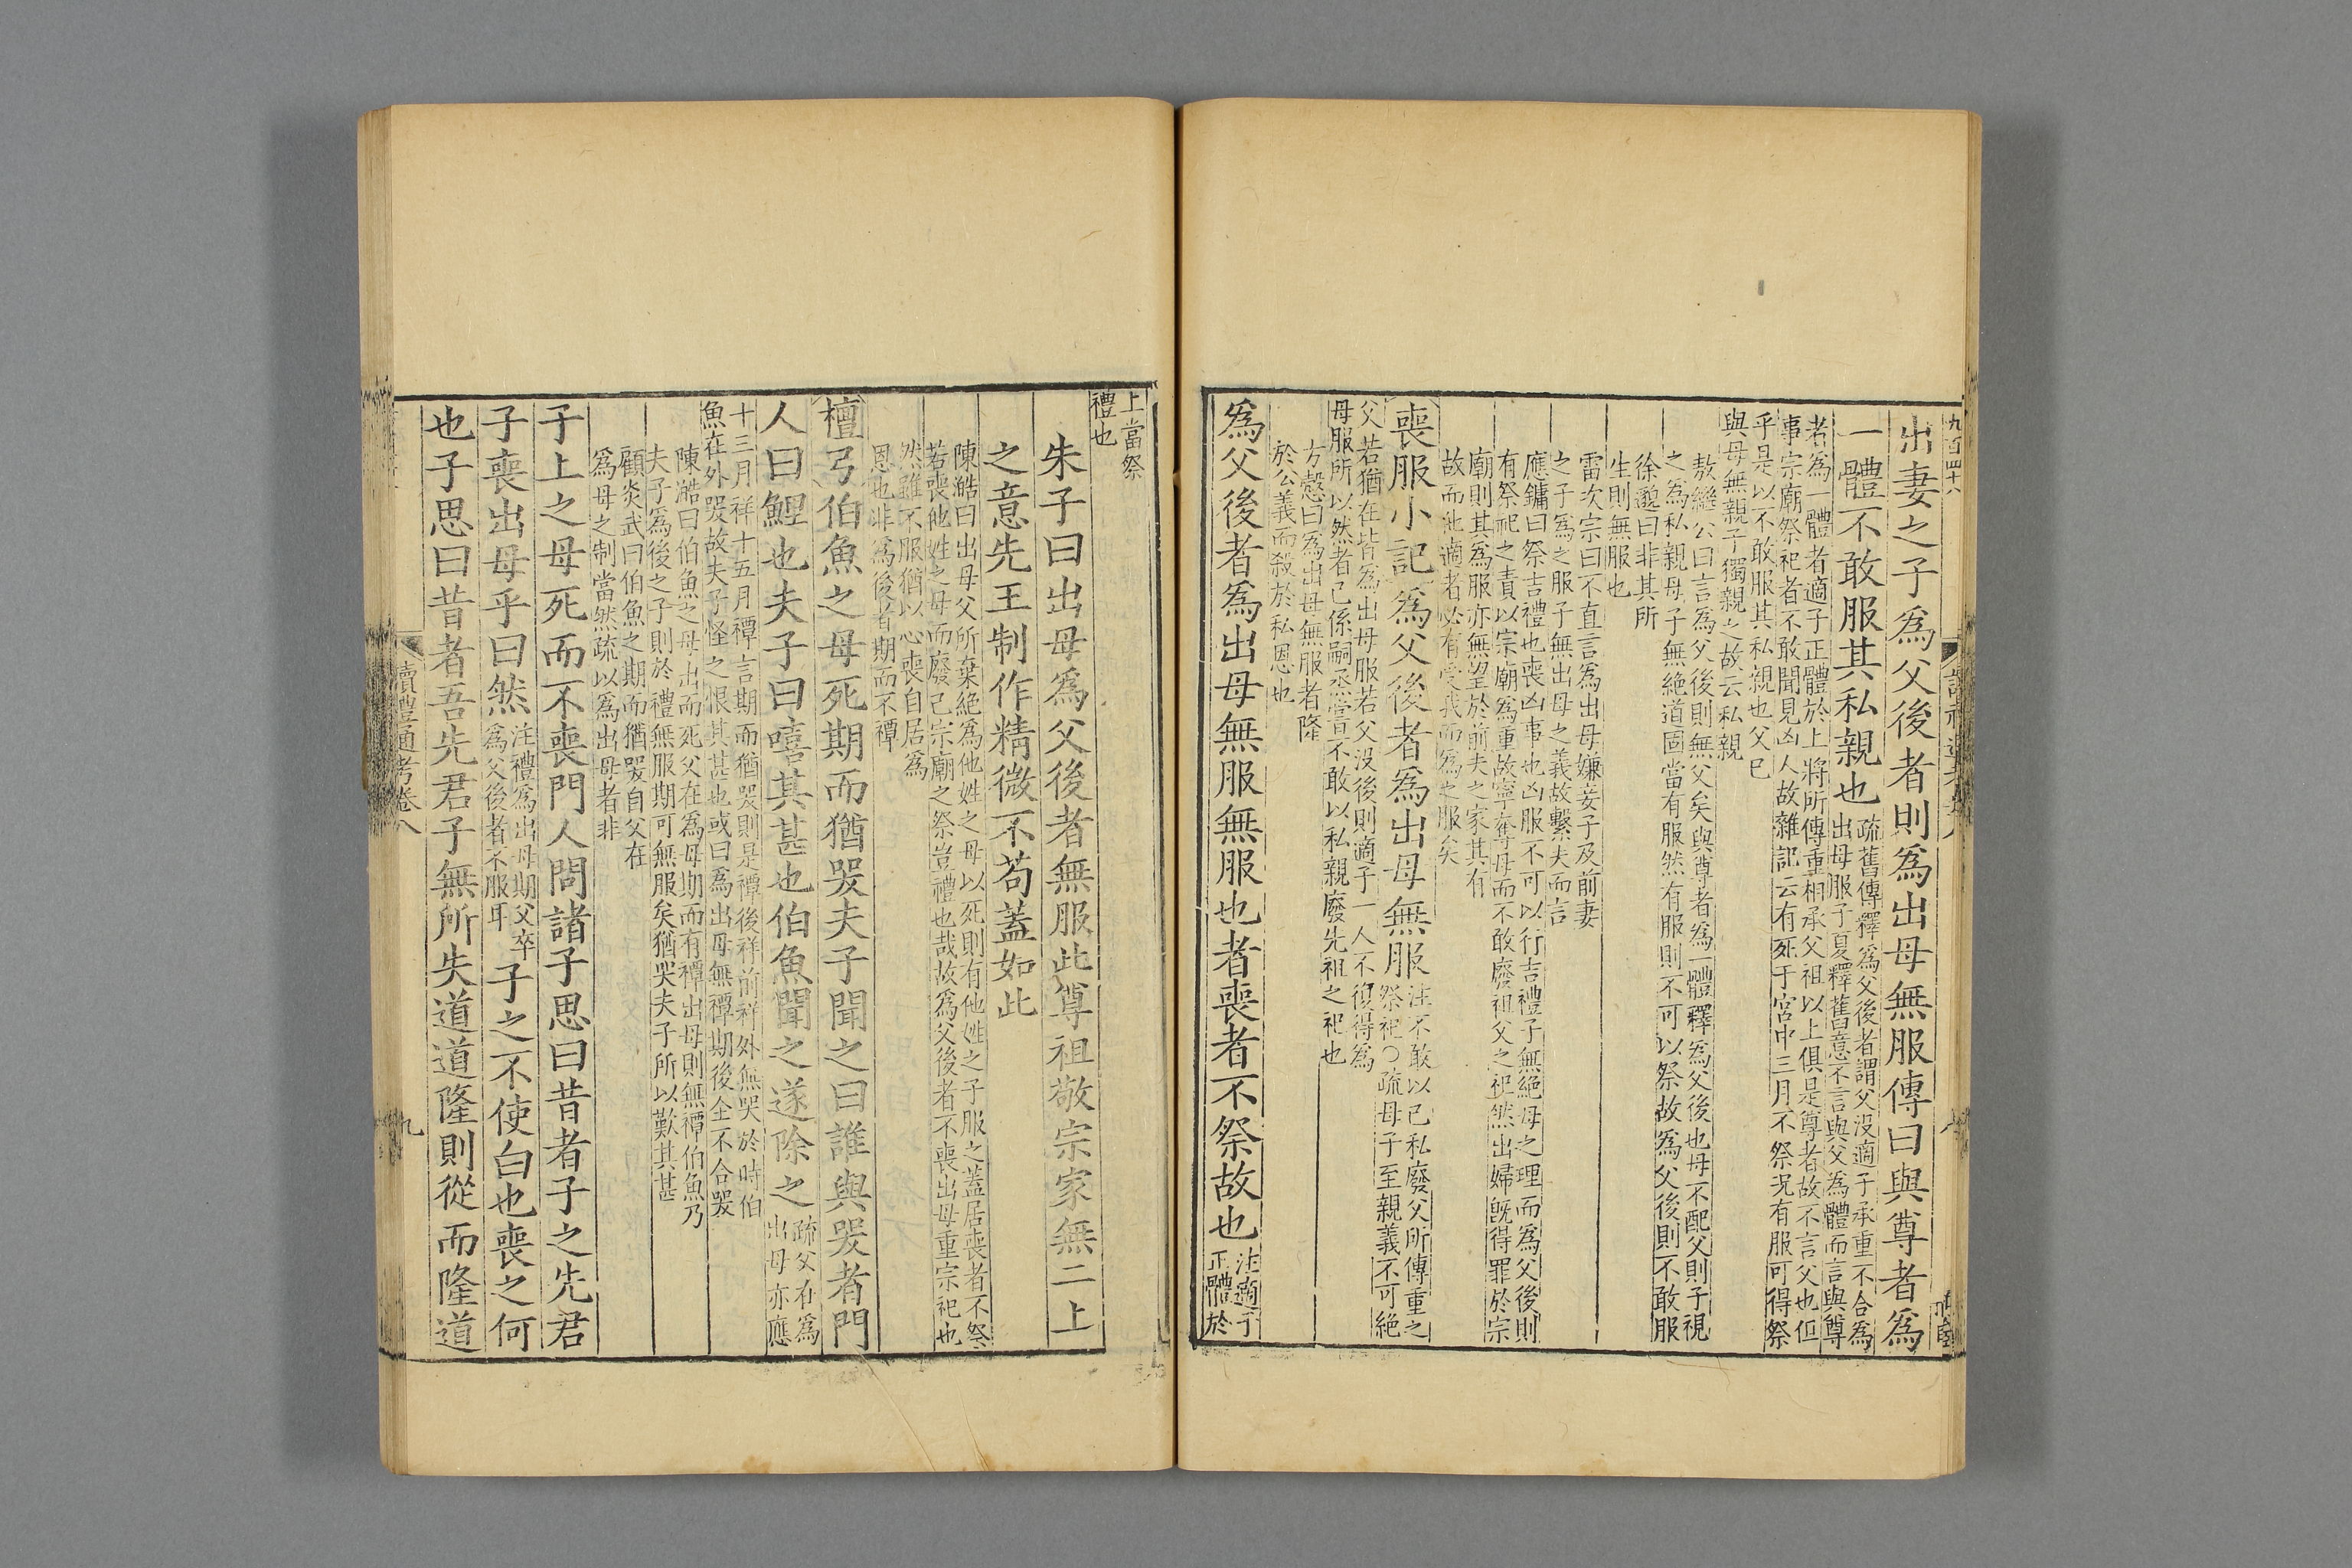 九百四十八
出妻之子爲父後者則爲出母無服傳曰與尊者爲
一體不敢服其私親也
疏舊傳釋爲父後者謂父没適子承重不合爲
出母服子夏釋舊意不言與父爲體而言與尊
者爲一體者適子正體於上將所傳重相承父祖以上俱是尊者故不言父也但
事宗廟祭祀者不敢聞見凶人故雜記云有死于宮中三月不祭况有服可得祭
乎是以不敢服其私親也父已
與母無親子獨親之故云私親
敖繼公曰言爲父後則無父矣與尊者爲一體釋爲父後也母不配父則子視
之爲私親母子無絶道固當有服然有服則不可以祭故爲父後則不敢服
徐邈曰非其所
生則無服也
雷次宗曰不直言爲出母嫌妾子及前妻
之子爲之服子無出母之義故繫夫而言
應鏞曰祭吉禮也喪凶事也凶服不可以行吉禮子無絶母之理而爲父後則
有祭祀之責以宗廟爲重故寧奪母而不敢廢祖父之祀然出婦既得罪於宗
廟則其爲服亦無望於前夫之家其有
故而他適者必有受我而爲之服矣
喪服小記爲父後者爲出母無服
注不敢以已私廢父所傳重之
祭祀○疏母子至親義不可絶
父若猶在皆爲出母服若父没後則適子一人不復得爲
母服所以然者己係嗣烝嘗不敢以私親廢先祖之祀也
方慤曰爲出母無服者隆
於公義而殺於私恩也
爲父後者爲出母無服無服也者喪者不祭故也
注適子
正體於
上當祭
禮也
朱子曰出母爲父後者無服此尊祖敬宗家無二上
之意先王制作精微不苟蓋如此
陳澔曰出母父所棄絶爲他姓之母以死則有他姓之子服之蓋居喪者不祭
若喪他姓之母而廢己宗廟之祭豈禮也哉故爲父後者不喪出母重宗祀也
然雖不服猶以心喪自居爲
恩也非爲後者期而不禫
檀弓伯魚之母死期而猶哭夫子聞之曰誰與哭者門
人曰鯉也夫子曰嘻其甚也伯魚聞之遂除之
疏父在爲
出母亦應
十三月祥十五月禫言期而猶哭則是禫後祥前祥外無哭於時伯
魚在外哭故夫子怪之恨其甚也或曰爲出母無禫期後全不合哭
陳澔曰伯魚之母出而死父在爲母期而有禫出母則無禫伯魚乃
夫子爲後之子則於禮無服期可無服矣猶哭夫子所以歎其甚
顧炎武曰伯魚之期而猶哭自父在
爲母之制當然疏以爲出母者非
子上之母死而不喪門人問諸子思曰昔者子之先君
子喪出母乎曰然
注禮爲出母期父卒
爲父後者不服耳
子之不使白也喪之何
也子思曰昔者吾先君子無所失道道隆則從而隆道
讀禮通考卷八
九